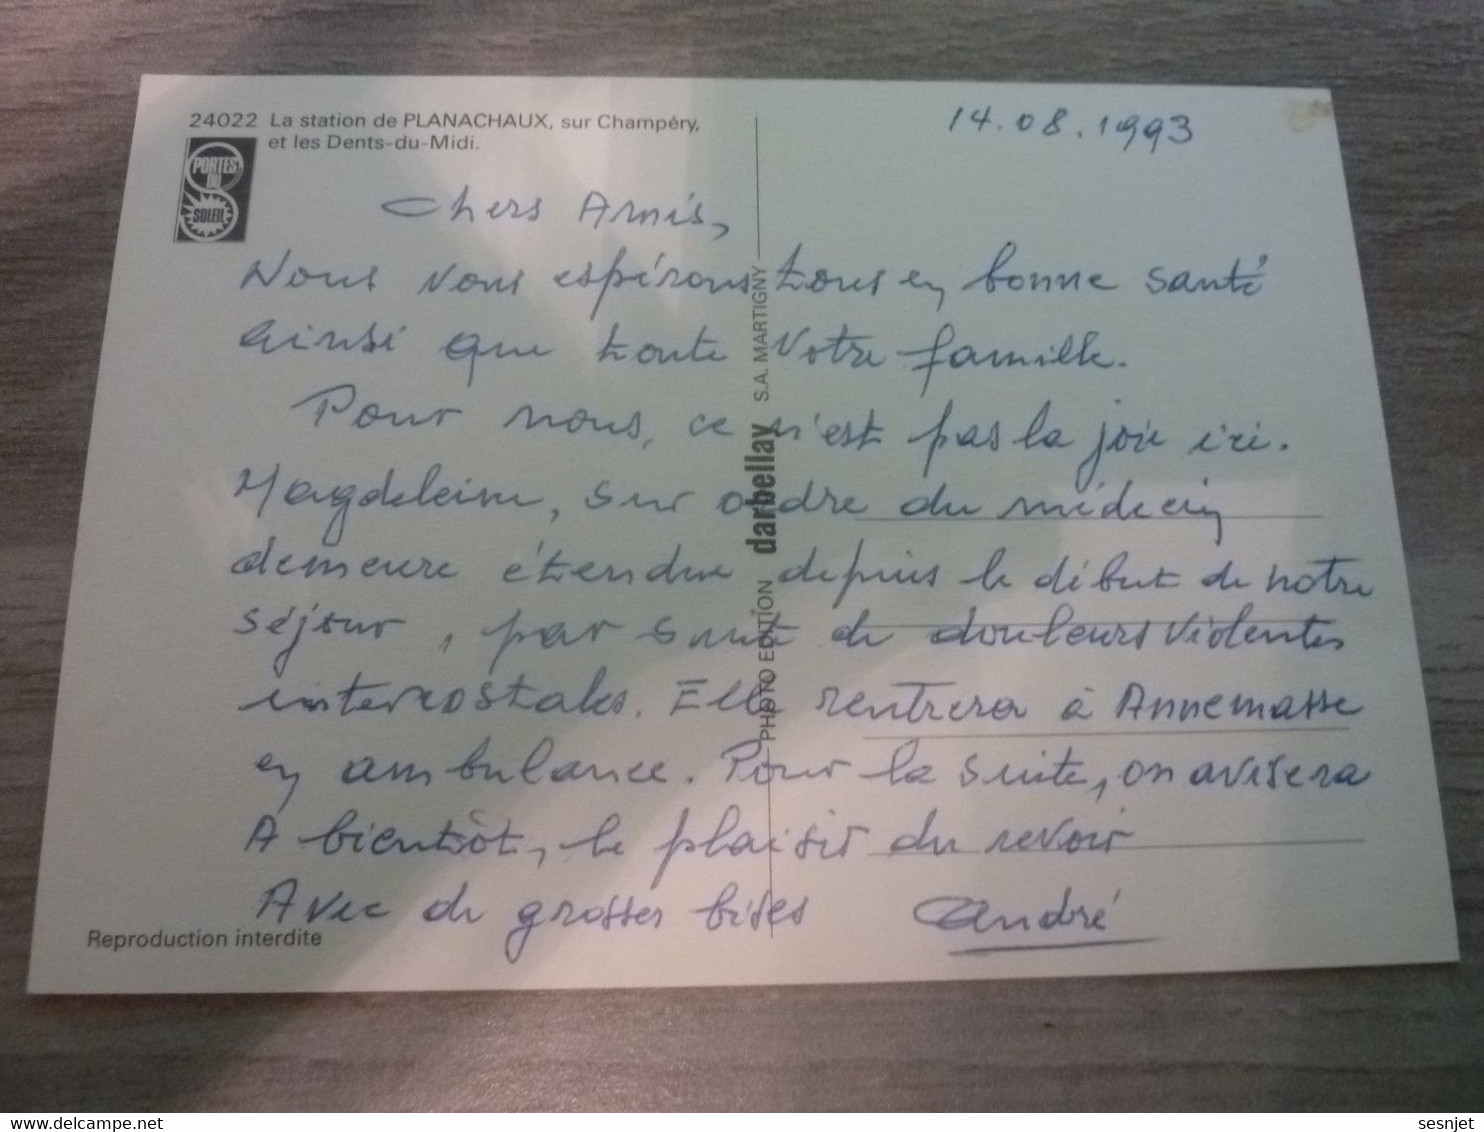 24022 La station de PLANACHAUX, sur Champéry,
et les Dents-du-Midi.
PORTES
DU
SOLEIL
14.08.1993
Chers Amis,
Nous vous espérons tous en bonne santé
ainsi que toute votre famille.
Pour nous, ce n'est pas la joie ici.
Magdeleine, sur ordre du médecin
demeure étendue depuis le début de notre
séjour, par suite de douleurs violentes
intercostales. Elle rentrera à Annemasse
en ambulance. Pour la suite, on avisera
A bientôt, le plaisir du revoir
Avec de grosses bises André
PHOTO EDITION darbellay S.A. MARTIGNY
Reproduction interdite
sesnjet